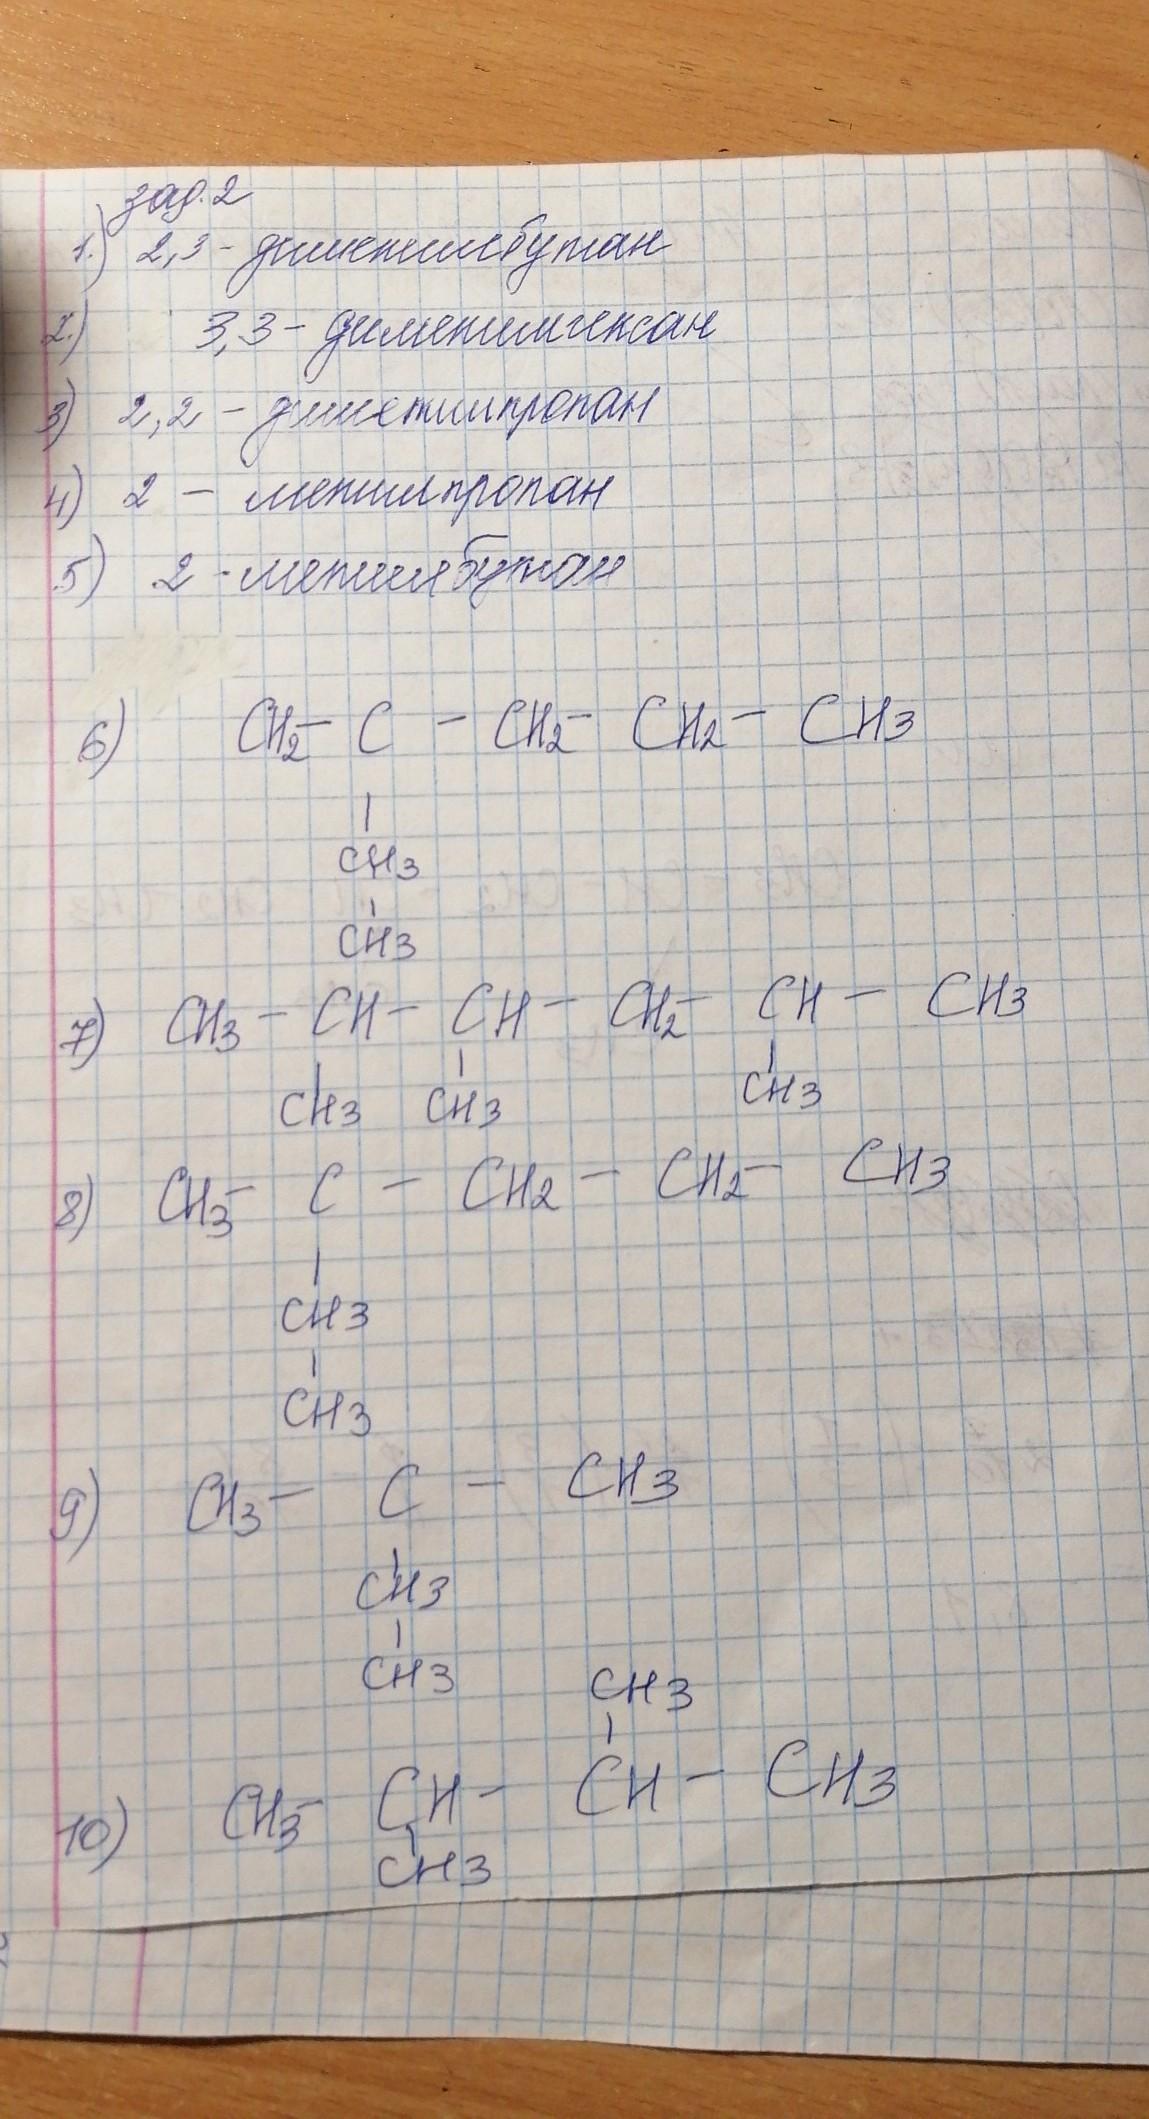 зад.2
1.) 2,3 - диметилбутан
2.) 3,3 - диметилгексан
3) 2,2 - диметилпропан
4) 2 - метилпропан
5) 2 - метилбутан
6) CH2 - C - CH2 - CH2 - CH3
|
CH3
|
CH3
7) CH3 - CH - CH - CH2 - CH - CH3
| | |
CH3 CH3 CH3
8) CH3 - C - CH2 - CH2 - CH3
|
CH3
|
CH3
9) CH3 - C - CH3
|
CH3
|
CH3
CH3
|
10) CH3 - CH - CH - CH3
|
CH3